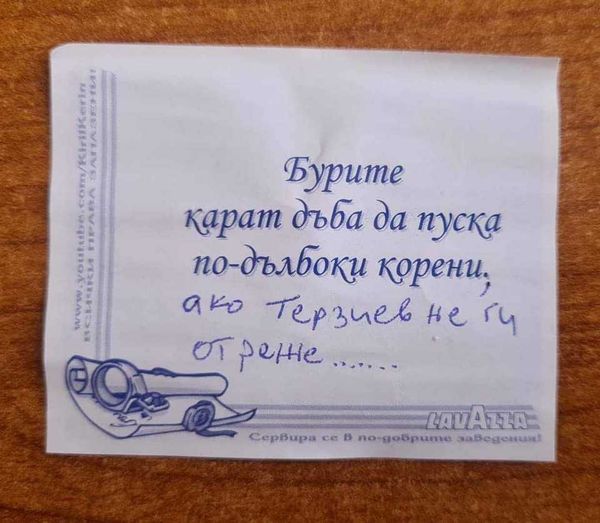 www.youtube.com/KirilKerin
ВСИЧКИ ПРАВА ЗАПАЗЕНИ!
Бурите
карат дъба да пуска
по-дълбоки корени,
ако Терзиев не ги
отреже.......
LAVAZZA
Сервира се в по-добрите заведения!